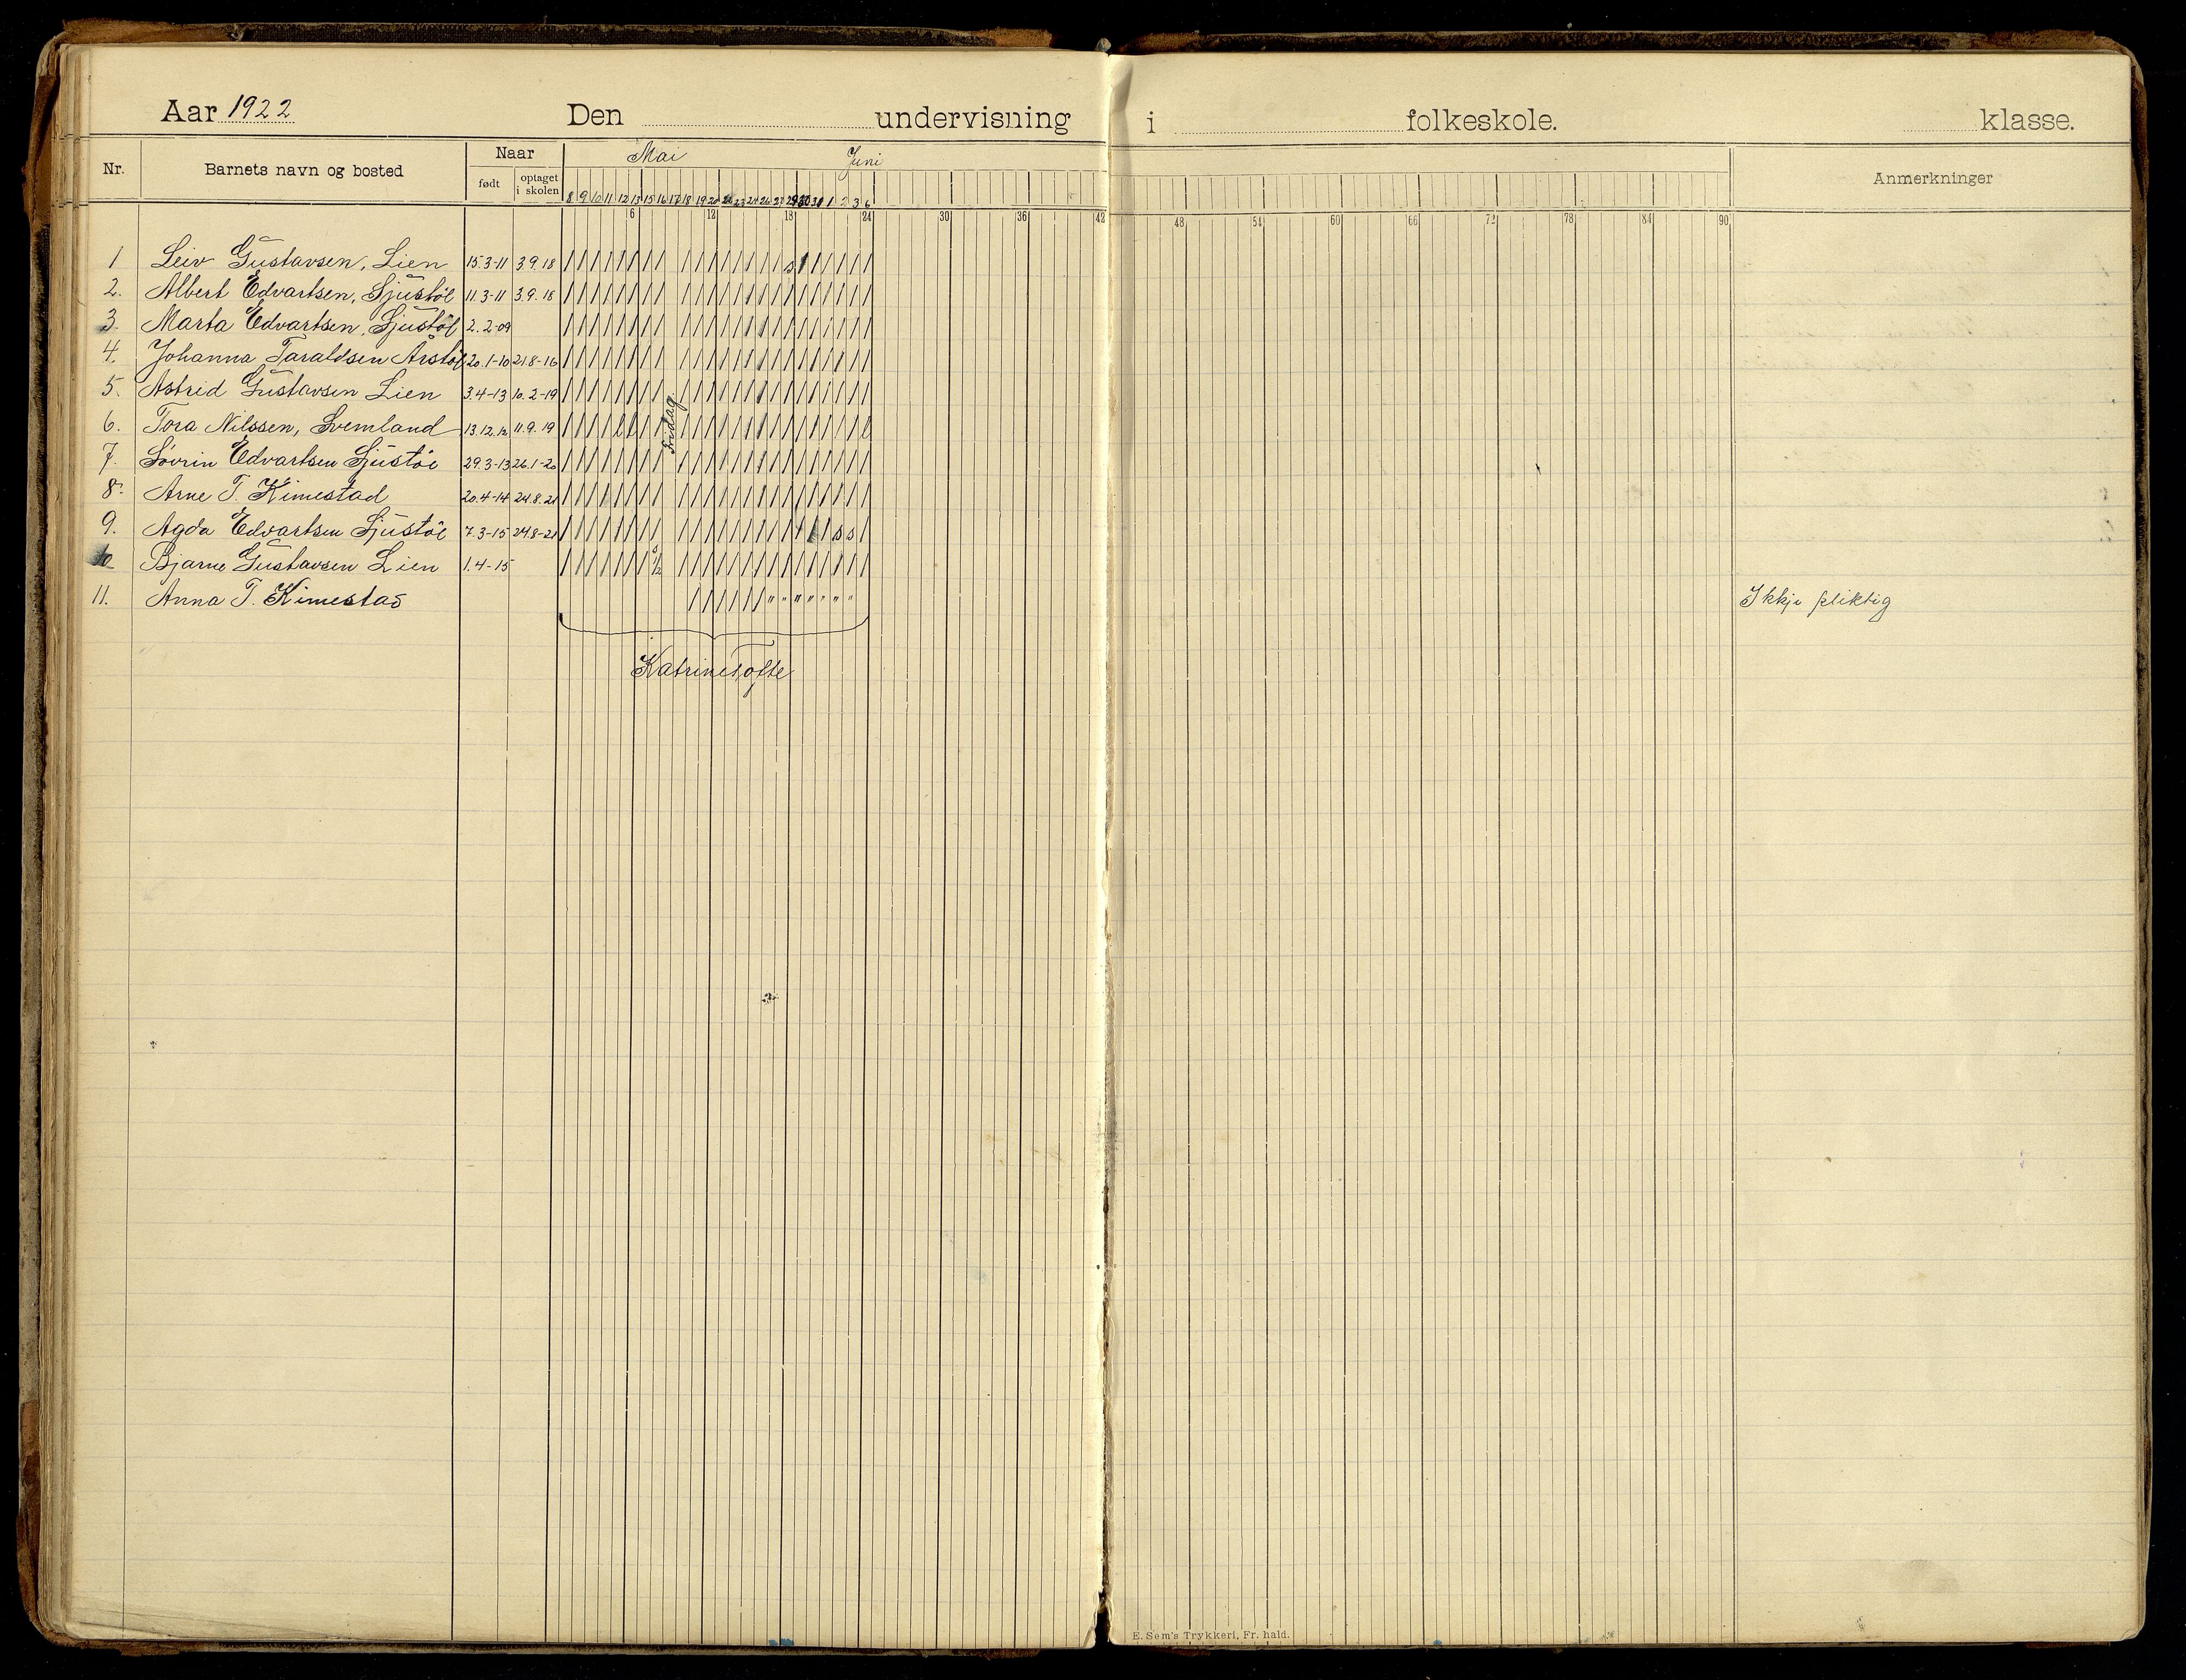 Aar 1922 Den undervisning i folkeskole. klasse.
Nr. Barnets navn og bosted Naar født optaget i skolen Mai Juni Anmerkninger
8 9 10 11 12 13 15 16 17 18 19 20 22 23 24 26 27 29 30 31 1 2 3 6
6 12 18 24 30 36 42 48 54 60 66 72 78 84 90
1 Leiv Gustavsen, Lien 15.3-11 3.9.18
2. Albert Edvartsen, Ljustöl 11.3-11 3.9.18
3. Marta Edvartsen, Ljustöl 2.2-09
4. Johanna Taraldsen Arstöl 20.1-10 21.8-16
5. Astrid Gustavsen Lien 3.4-13 10.2-19
6. Tora Nilssen, Svemland 13.12.12 11.9.19
7. Sövrin Edvartsen Ljustöl 29.3-13 26.1-20
8. Arne T. Kimestad 20.4-14 24.8.21
9. Agda Edvartsen Ljustöl 7.3-15 24.8-21
10 Bjarne Gustavsen Lien 1.4-15
11. Anna T. Kimestad Ikkje pliktig
Fridag
Katrine Tofte
E. Sem's Trykkeri, Fr. hald.